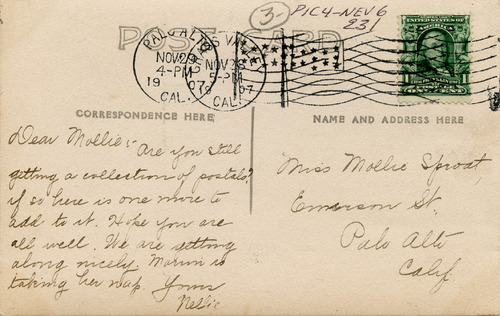 3-
PIC4-NEV6
231
POST CARD
PALO ALTO
NOV 29
4-PM
1907
CAL.
NOV 29
5-PM
1907
CAL.
1
CORRESPONDENCE HERE
NAME AND ADDRESS HERE
Dear Mollie:- Are you still
getting a collection of postals?
if so here is one more to
add to it. Hope you are
all well. We are getting
along nicely. Marion is
taking her nap. Yours
Nellie
Miss Mollie Sproat
Emerson St.
Palo Alto
Calif.